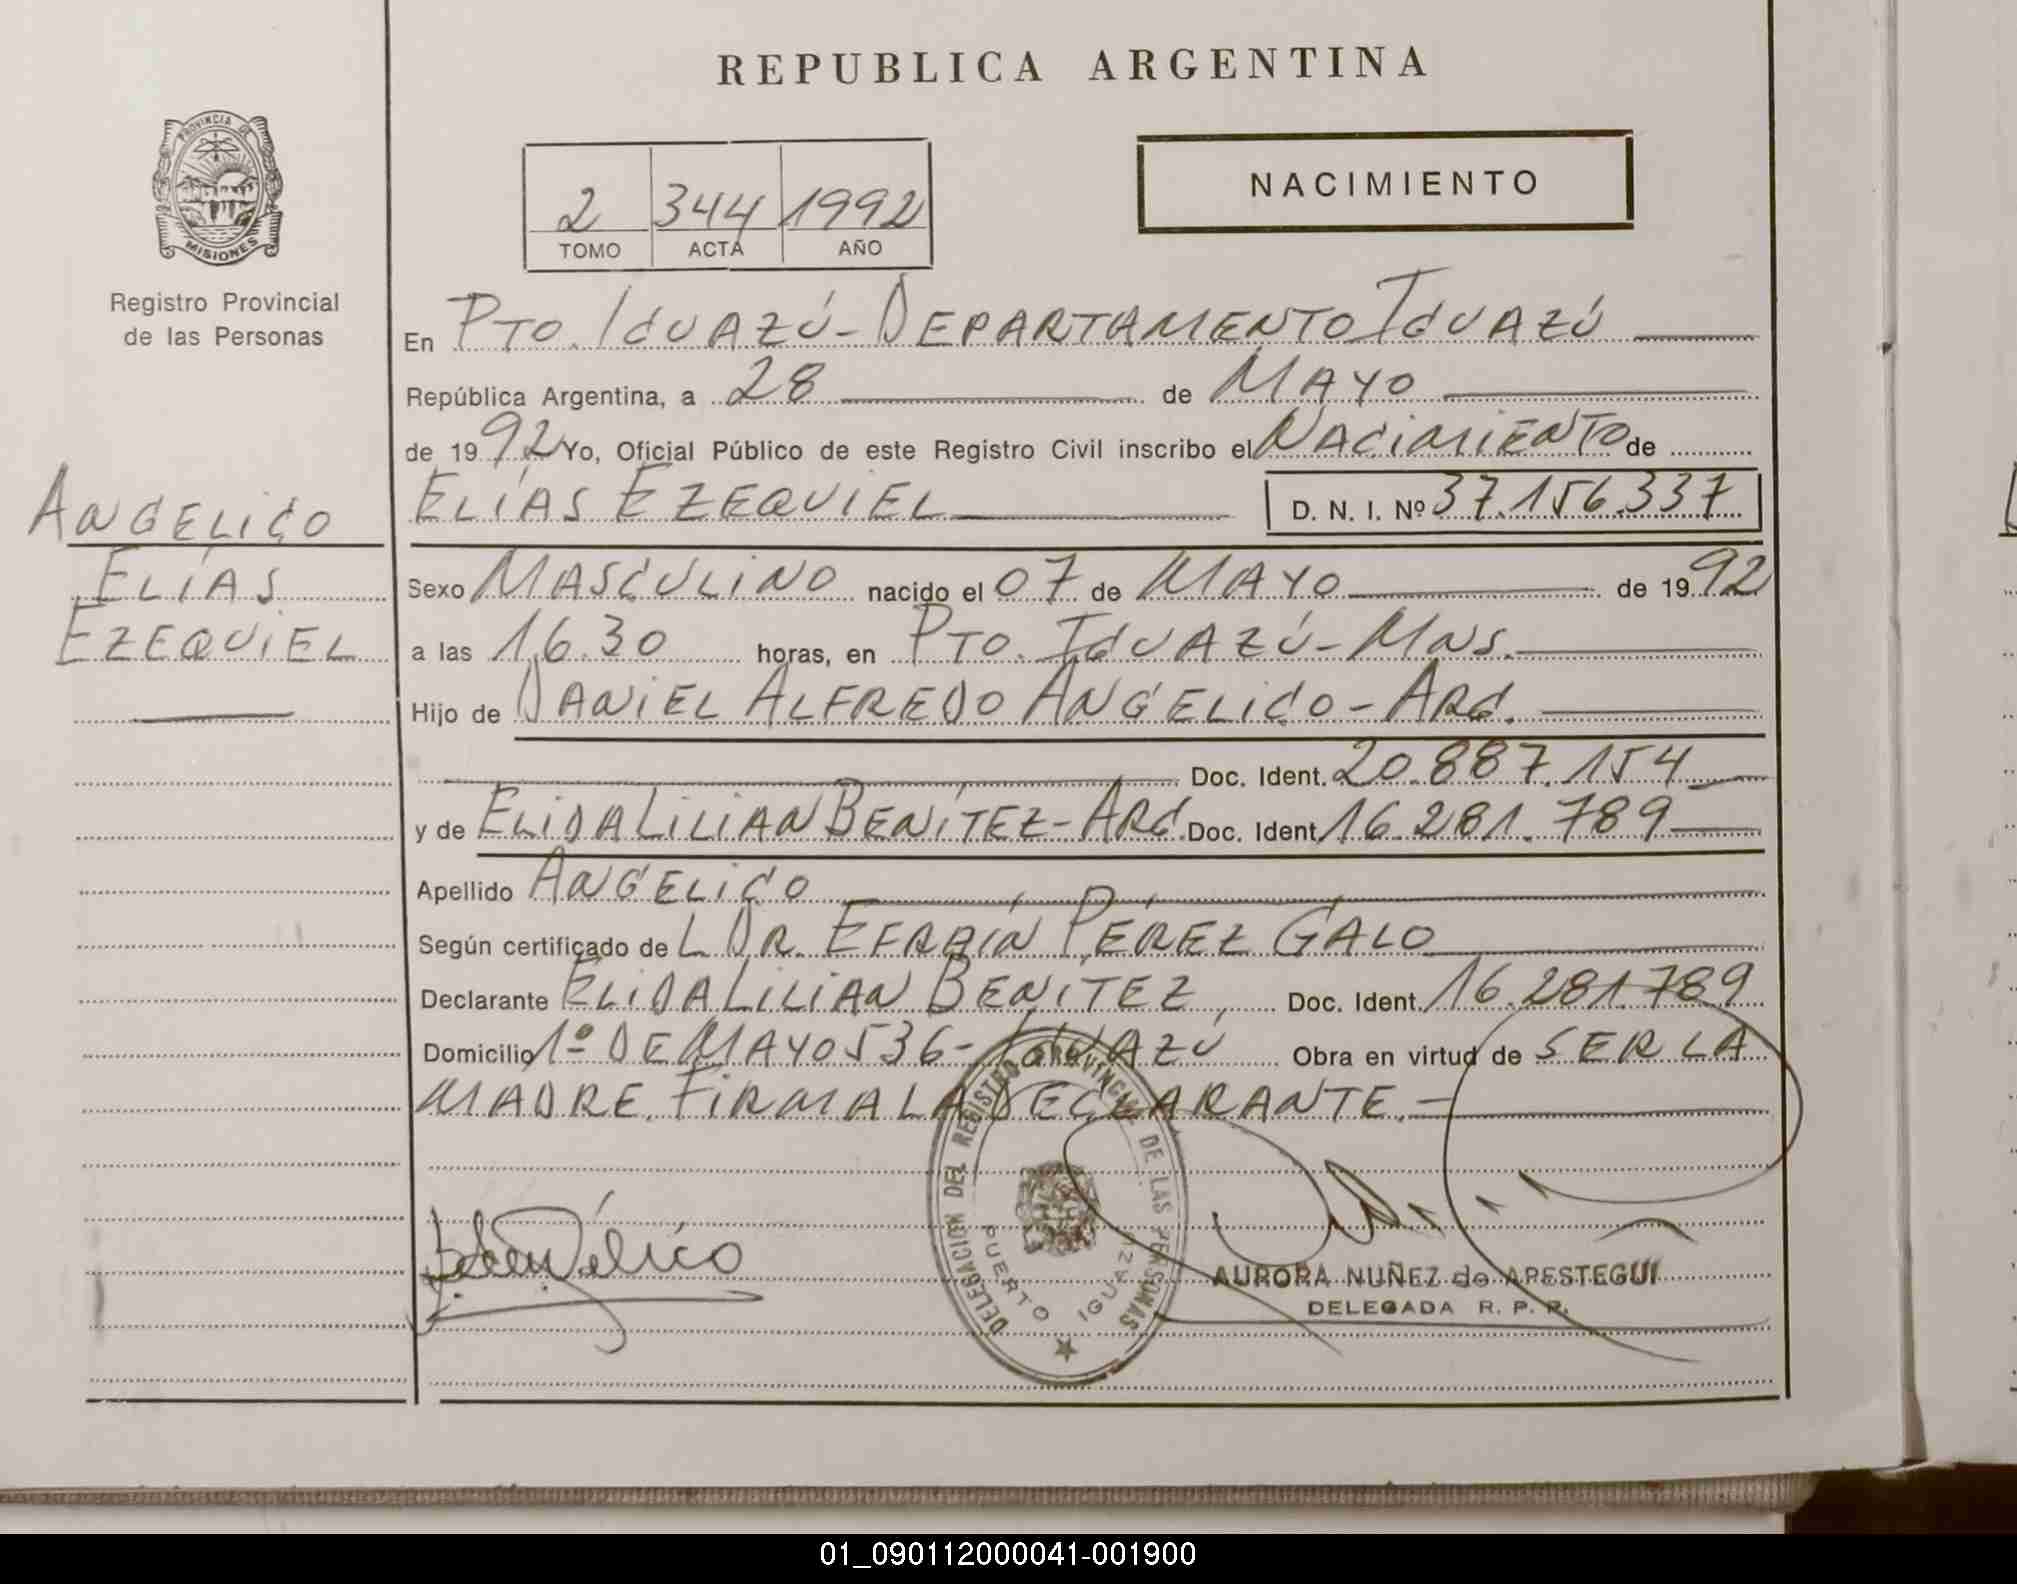 REPUBLICA ARGENTINA
PROVINCIA DE
MISIONES
Registro Provincial
de las Personas
2 344 1992
TOMO ACTA AÑO
NACIMIENTO
En PTO. IGUAZÚ - DEPARTAMENTO IGUAZÚ
República Argentina, a 28 de MAYO
de 1992 Yo, Oficial Público de este Registro Civil inscribo el NACIMIENTO de
ELÍAS EZEQUIEL D. N. I. Nº 37.156.337
ANGELICO
ELÍAS
EZEQUIEL
Sexo MASCULINO nacido el 07 de MAYO de 1992
a las 16.30 horas, en PTO. IGUAZÚ - MNS.
Hijo de DANIEL ALFREDO ANGELICO - ARG.
Doc. Ident. 20.887.154
y de ELIDA LILIAN BENÍTEZ - ARG. Doc. Ident. 16.281.789
Apellido ANGELICO
Según certificado de L. DR. EFRAÍN PÉREZ GALO
Declarante ELIDA LILIAN BENÍTEZ, Doc. Ident. 16.281.789
Domicilio 1º DE MAYO 536 - IGUAZÚ Obra en virtud de SER LA
MADRE. FIRMA LA DECLARANTE. -
DELEGACION DEL REGISTRO PROVINCIAL DE LAS PERSONAS
PUERTO IGUAZU
AURORA NUÑEZ de APESTEGUI
DELEGADA R. P. P.
01_090112000041-001900